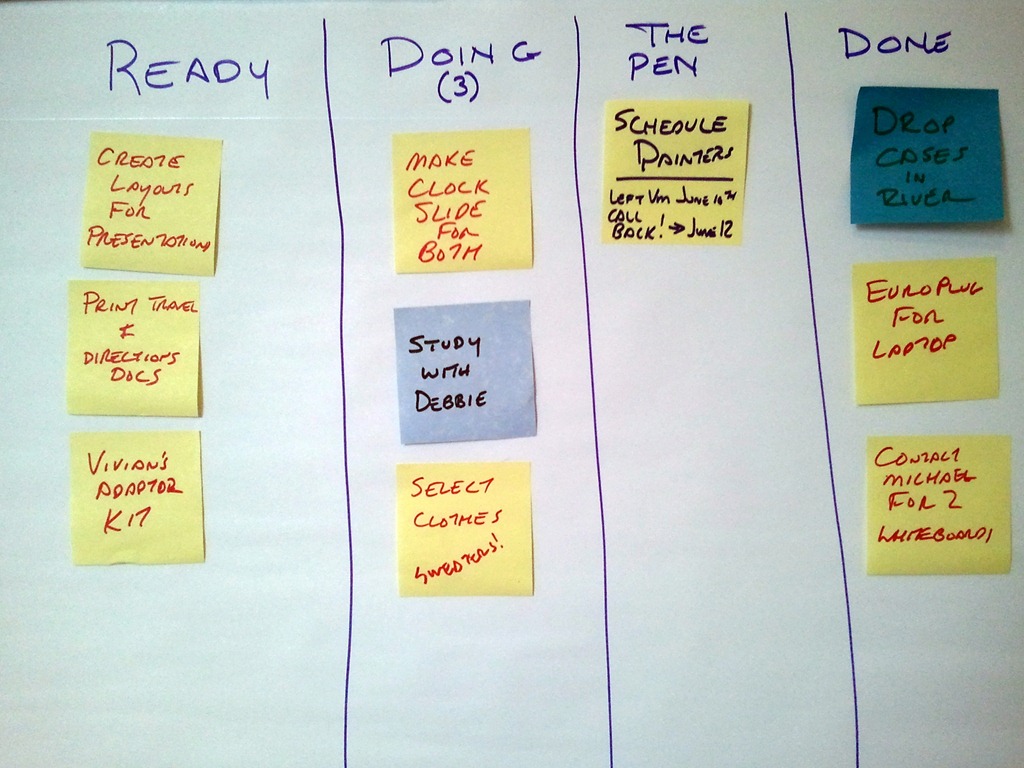 READY
CREATE
LAYOUTS
FOR
PRESENTATIONS
PRINT TRAVEL
&
DIRECTIONS
DOCS
VIVIAN'S
ADAPTOR
KIT
DOING
(3)
MAKE
CLOCK
SLIDE
FOR
BOTH
STUDY
WITH
DEBBIE
SELECT
CLOTHES
SWEATERS!
THE
PEN
SCHEDULE
PAINTERS
LEFT VM JUNE 10TH
CALL
BACK! → JUNE 12
DONE
DROP
CASES
IN
RIVER
EUROPLUG
FOR
LAPTOP
CONTACT
MICHAEL
FOR 2
WHITEBOARDS